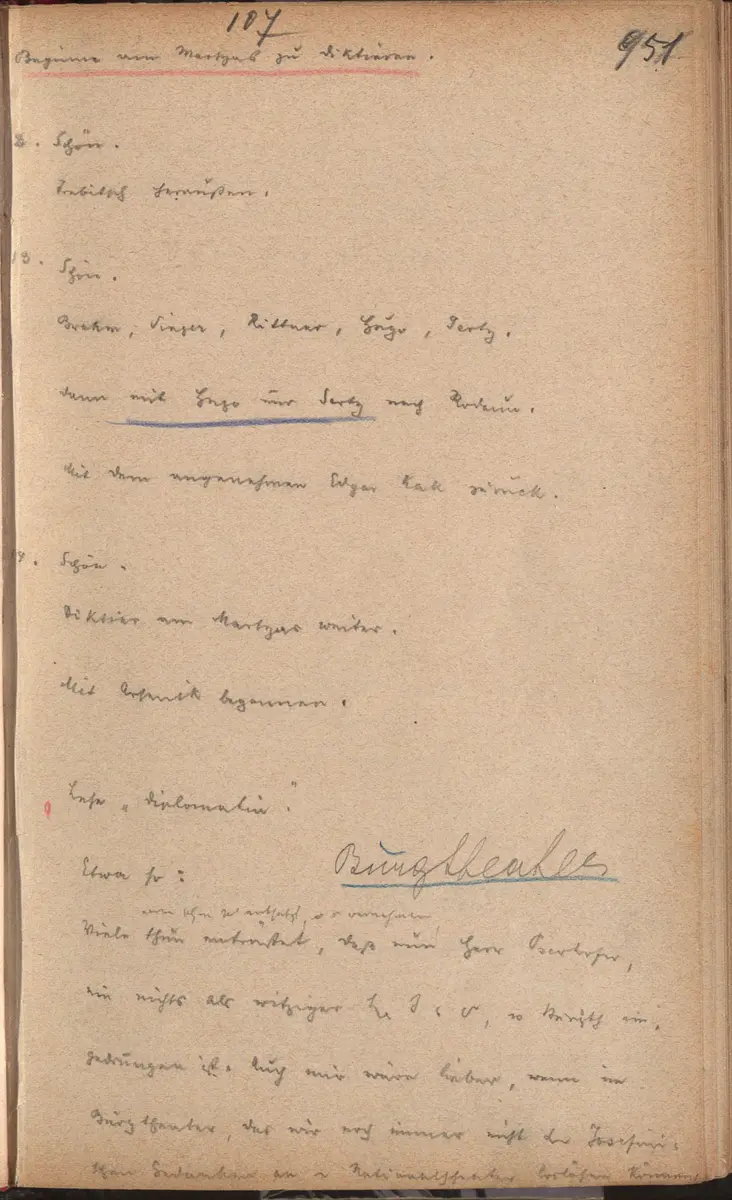 107
951
Beginne am Martyas zu diktieren.
8. Schön.
Trebitsch heraußen.
13. Schön.
Brahm, Singer, Rittner, Hugo, Gerty.
dann mit Hugo und Gerty nach Rodaun.
Mit dem angenehmen Edgar Kak zurück.
14. Schön.
Diktier am Martyas weiter.
Mit Arsenik begonnen.
Lese „Diplomatin“.
Burgtheater
Etwa so:
Viele thun entrüstet, daß nun Herr
ein nichts als witziger
gedrungen ist. Auch mir wäre lieber, wenn im
Burgtheater, das wir noch immer nicht der Josefini-
schen Gedanken an Nationaltheater können